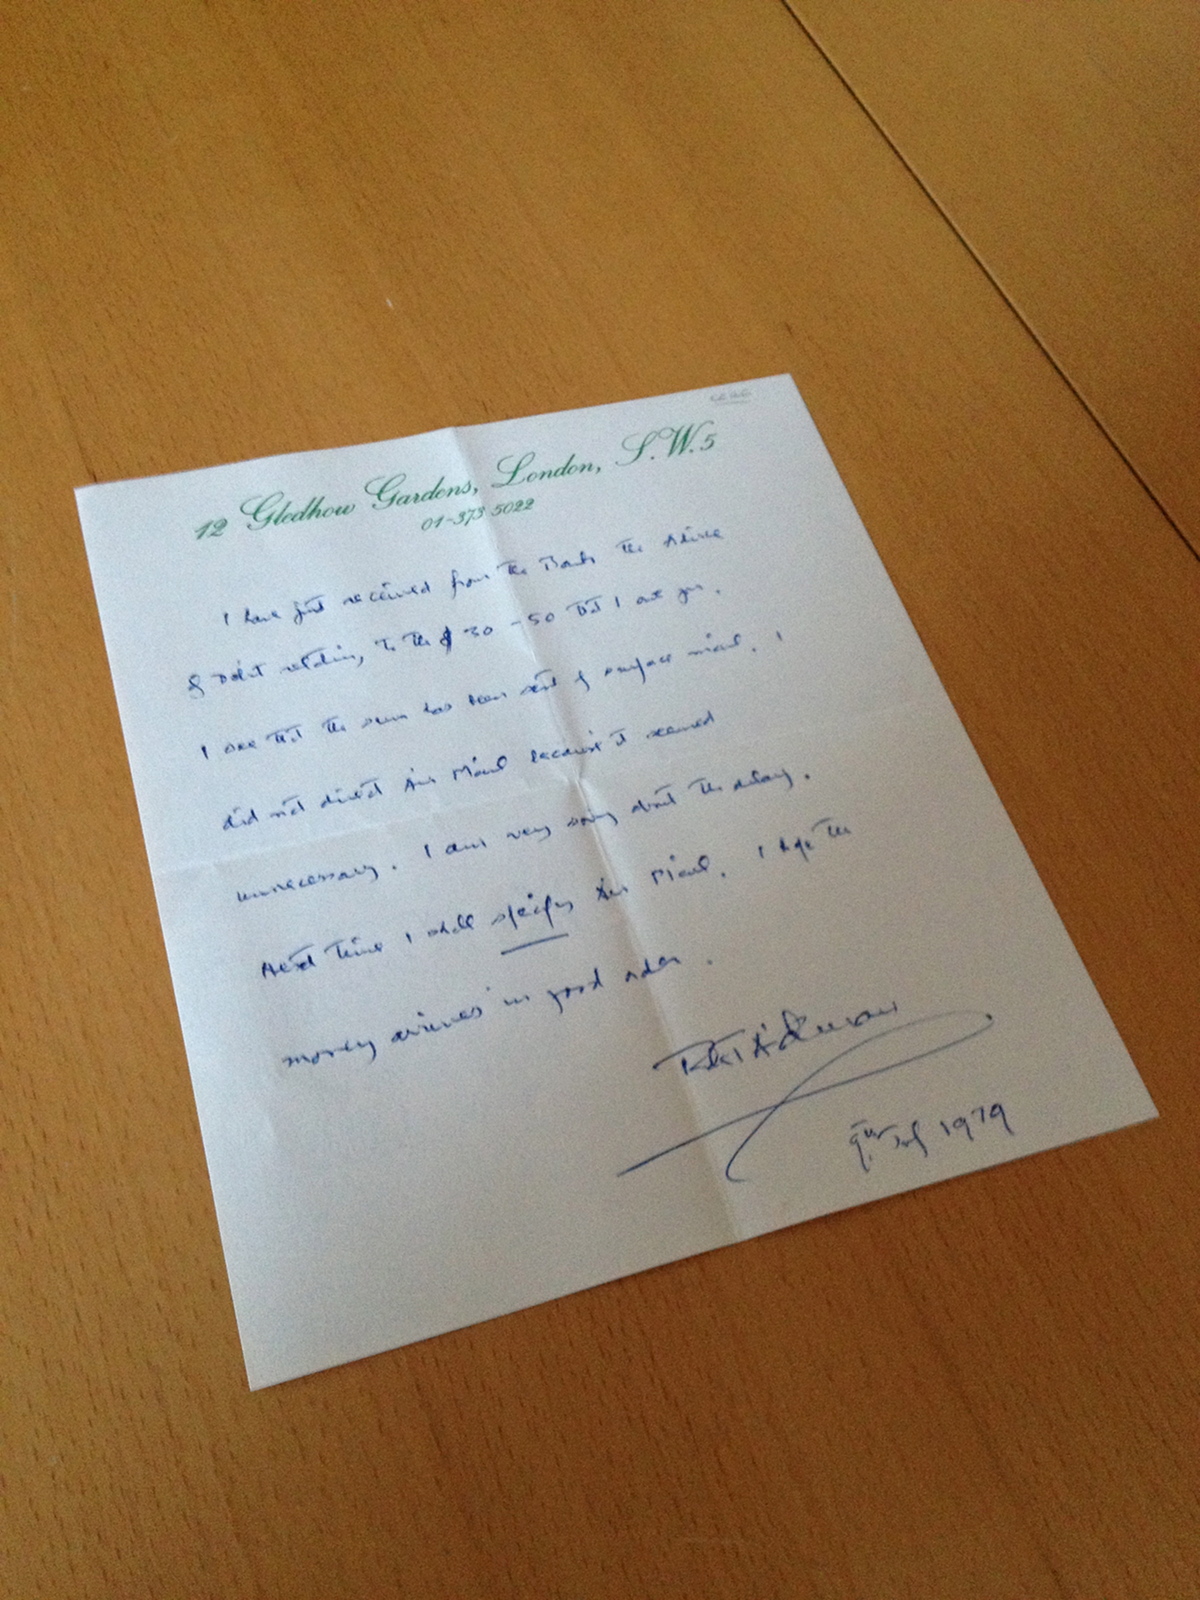 12 Gledhow Gardens, London, S.W.5
01-373 5022
I have just received from the Bank the Advice
of Debit relating to the $ 30 - 50 that I owe you.
I see that the sum has been sent by surface mail. I
did not direct Air Mail because it seemed
unnecessary. I am very sorry about the delay.
Next time I shall specify Air Mail. I hope the
money arrives in good order.
9th 1979